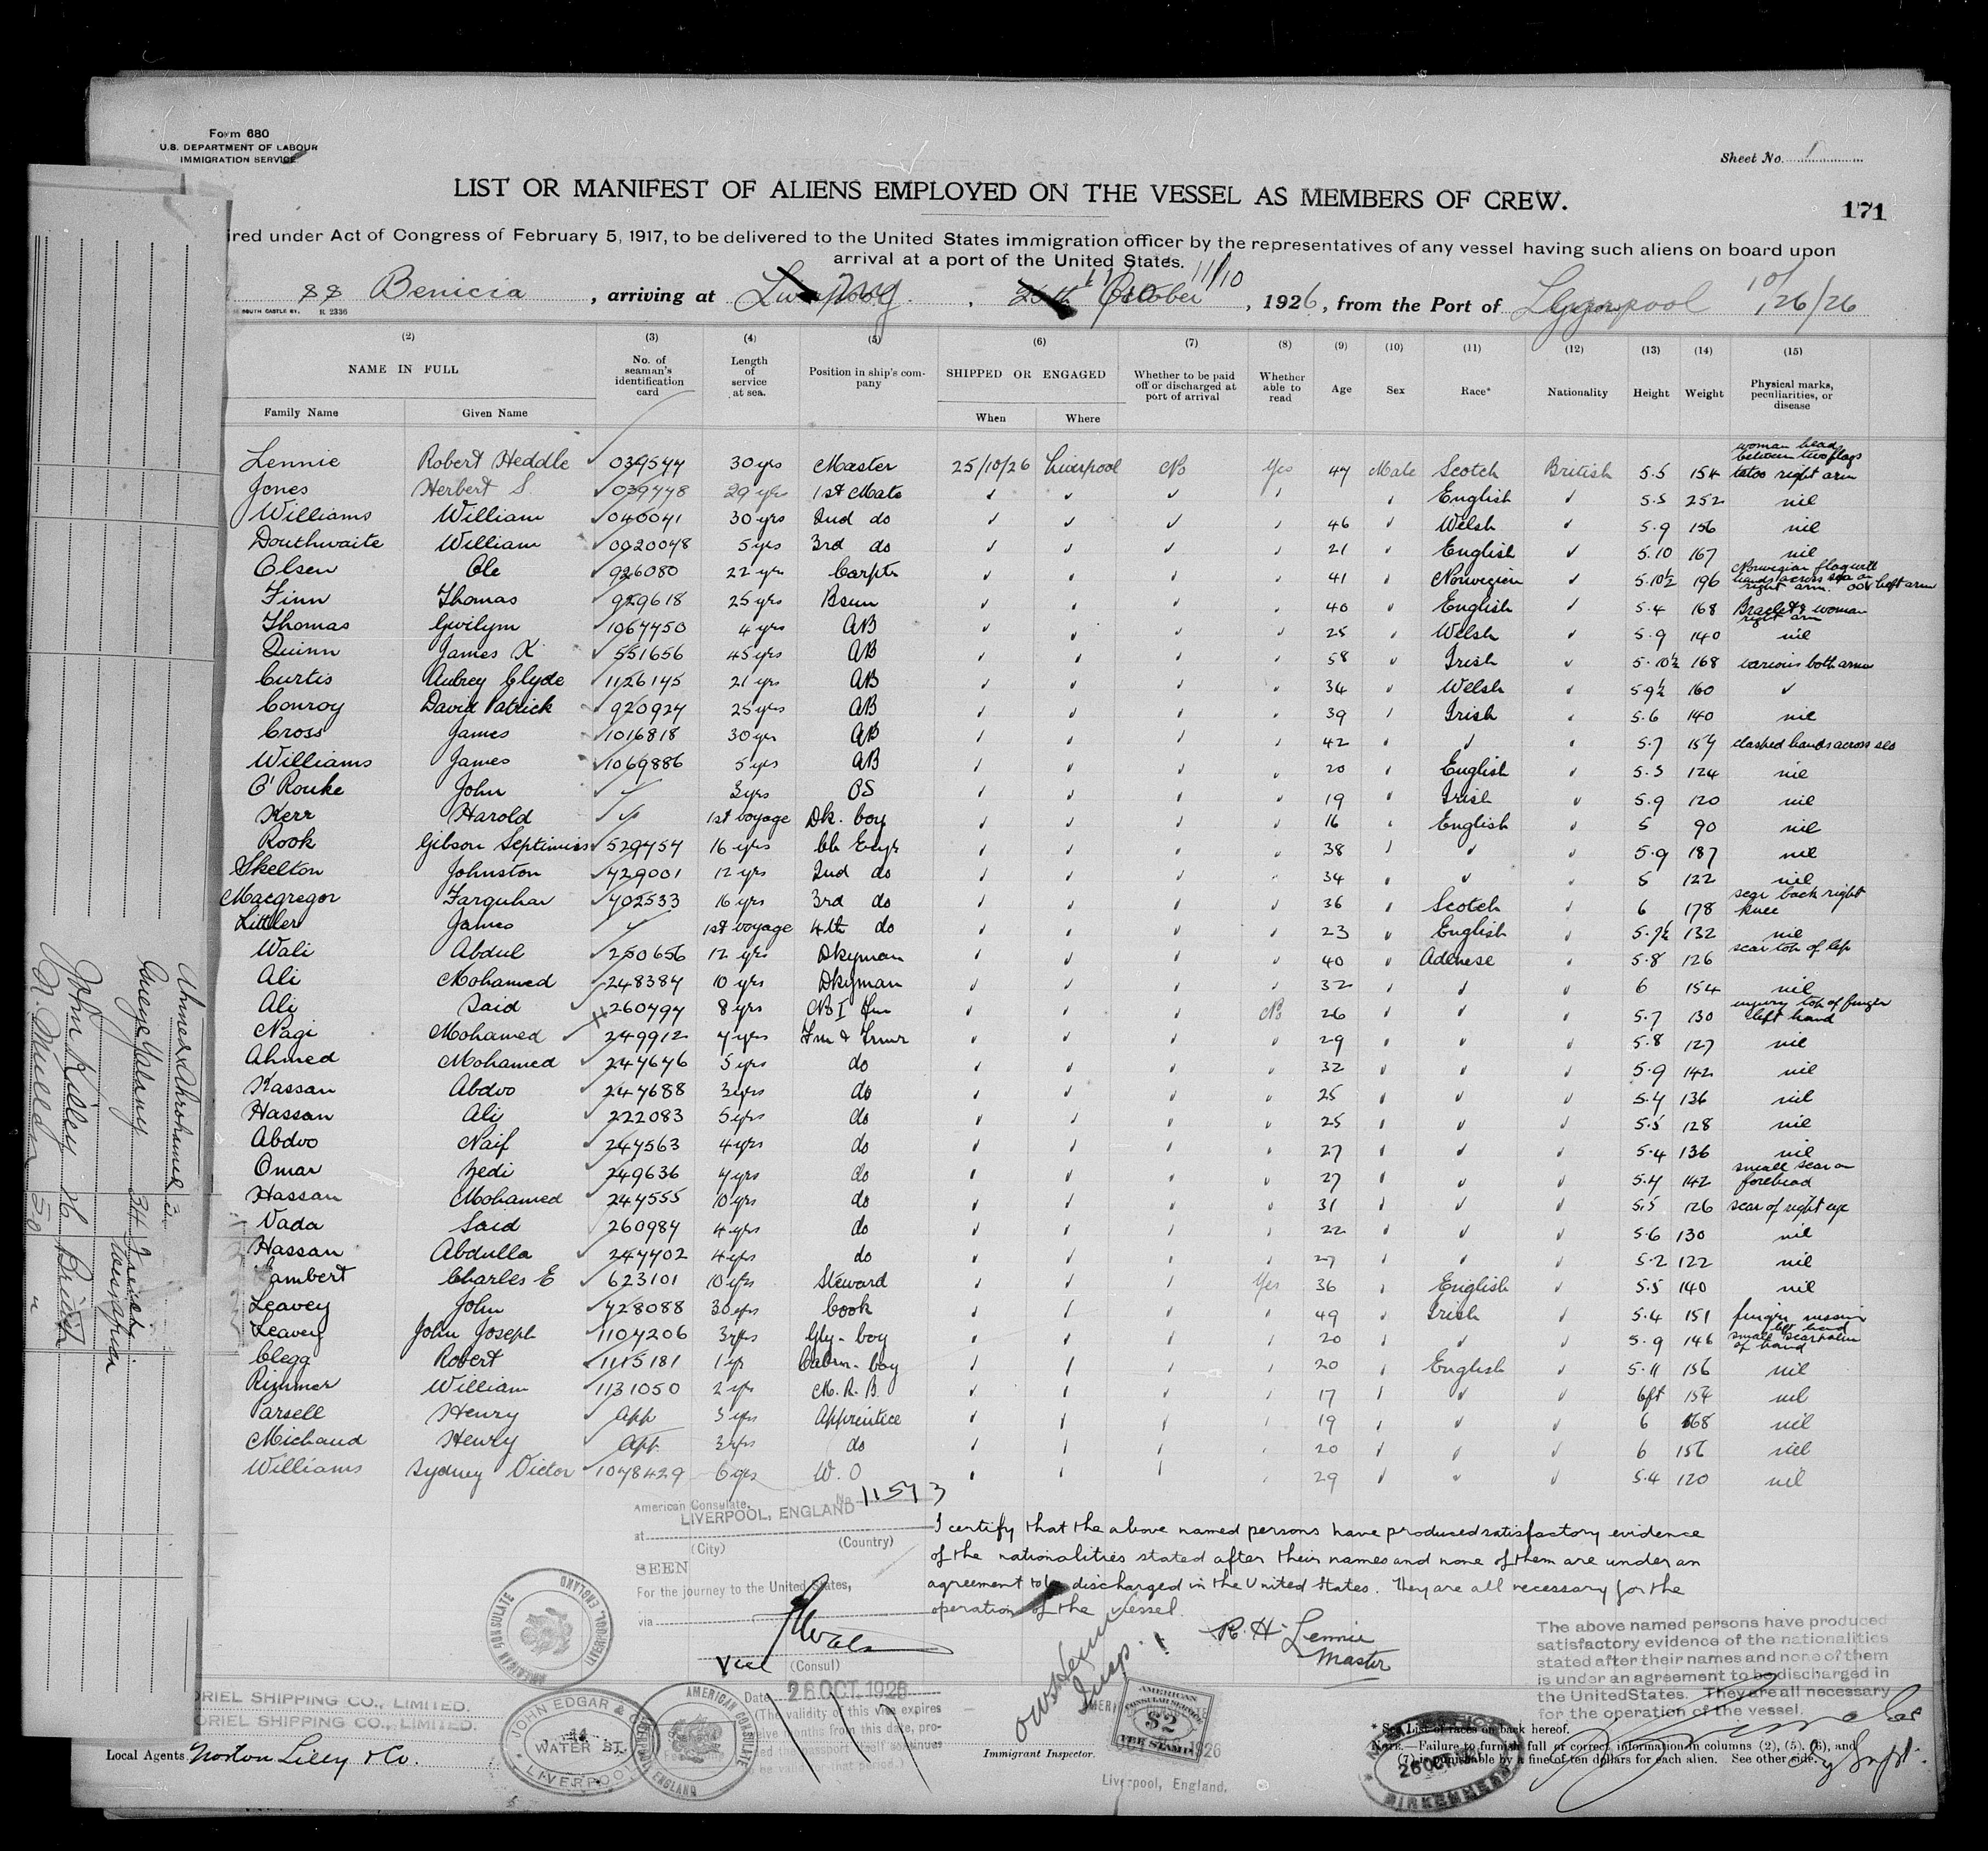 Form 680
U.S. DEPARTMENT OF LABOUR
IMMIGRATION SERVICE
Sheet No. 1
LIST OR MANIFEST OF ALIENS EMPLOYED ON THE VESSEL AS MEMBERS OF CREW.
171
ired under Act of Congress of February 5, 1917, to be delivered to the United States immigration officer by the representatives of any vessel having such aliens on board upon
arrival at a port of the United States.
SS Benicia, arriving at 11/10, 1926, from the Port of Liverpool 10/26/26
SOUTH CASTLE ST. R 2336
(2) (3) (4) (5) (6) (7) (8) (9) (10) (11) (12) (13) (14) (15)
NAME IN FULL No. of seaman's identification card Length of service at sea. Position in ship's company SHIPPED OR ENGAGED Whether to be paid off or discharged at port of arrival Whether able to read Age Sex Race* Nationality Height Weight Physical marks, peculiarities, or disease
Family Name Given Name When Where
Lennie Robert Heddle ✓ 039544 30 yrs Master 25/10/26 Liverpool No Yes 47 Male Scotch British 5.5 154 woman head between two flags tatoo right arm
Jones Herbert S. ✓ 039448 29 yrs 1st Mate ✓ ✓ ✓ ✓ ✓ English ✓ 5.5 252 nil
Williams William ✓ 040041 30 yrs 2nd do ✓ ✓ ✓ ✓ 46 ✓ Welsh ✓ 5.9 156 nil
Douthwaite William ✓ 0020048 5 yrs 3rd do ✓ ✓ ✓ ✓ 21 ✓ English ✓ 5.10 167 nil
Olsen Ole ✓ 926080 22 yrs Carptr ✓ ✓ ✓ ✓ 41 ✓ Norwegian ✓ 5.10½ 196 Norwegian flag with hands across sea on right arm. left arm
Finn Thomas ✓ 929618 25 yrs Bsun ✓ ✓ ✓ ✓ 40 ✓ English ✓ 5.4 168 Braclet & woman right arm
Thomas Gwilym ✓ 1064450 4 yrs AB ✓ ✓ ✓ ✓ 25 ✓ Welsh ✓ 5.9 140 nil
Quinn James K ✓ 551656 45 yrs AB ✓ ✓ ✓ ✓ 58 ✓ Irish ✓ 5.10½ 168 various both arms
Curtis Aubrey Clyde ✓ 1126145 21 yrs AB ✓ ✓ ✓ ✓ 34 ✓ Welsh ✓ 5.9½ 160 ✓
Conroy David Patrick ✓ 920924 25 yrs AB ✓ ✓ ✓ ✓ 39 ✓ Irish ✓ 5.6 140 nil
Cross James ✓ 1016818 30 yrs AB ✓ ✓ ✓ ✓ 42 ✓ ✓ ✓ 5.7 154 clasped hands across sea
Williams James ✓ 1069886 5 yrs AB ✓ ✓ ✓ ✓ 20 ✓ English ✓ 5.5 124 nil
O'Rouke John ✓ ✓ 3 yrs OS ✓ ✓ ✓ ✓ 19 ✓ Irish ✓ 5.9 120 nil
Kerr Harold ✓ ✓ 1st voyage Dk. boy ✓ ✓ ✓ ✓ 16 ✓ English ✓ 5 90 nil
Rook Gibson Septimius ✓ 529454 16 yrs Ch Engr ✓ ✓ ✓ ✓ 38 ✓ ✓ ✓ 5.9 187 nil
Skelton Johnston ✓ 429001 12 yrs 2nd do ✓ ✓ ✓ ✓ 34 ✓ ✓ ✓ 5 122 nil
Macgregor Farquhar ✓ 402533 16 yrs 3rd do ✓ ✓ ✓ ✓ 36 ✓ Scotch ✓ 6 178 scar back right knee
Littler James ✓ 1st voyage 4th do ✓ ✓ ✓ ✓ 23 ✓ English ✓ 5.7½ 132 nil
Wali Abdul ✓ 250656 12 yrs Dkyman ✓ ✓ ✓ ✓ 40 ✓ Adenese ✓ 5.8 126 scar top of lip
Ali Mohamed ✓ 248384 10 yrs Dkyman ✓ ✓ ✓ ✓ 32 ✓ ✓ ✓ 6 154 nil
Ali Said ✓ 260494 8 yrs No 1 fm ✓ ✓ ✓ No 26 ✓ ✓ ✓ 5.7 130 injury top of finger left hand
Nagi Mohamed ✓ 249912 4 yrs Fm & Trmr ✓ ✓ ✓ ✓ 29 ✓ ✓ ✓ 5.8 127 nil
Ahmed Mohamed ✓ 244646 5 yrs do ✓ ✓ ✓ ✓ 32 ✓ ✓ ✓ 5.9 142 nil
Hassan Abdoo ✓ 244688 3 yrs do ✓ ✓ ✓ ✓ 25 ✓ ✓ ✓ 5.4 136 nil
Hassan Ali ✓ 222083 5 yrs do ✓ ✓ ✓ ✓ 25 ✓ ✓ ✓ 5.5 128 nil
Abdoo Naif ✓ 244563 4 yrs do ✓ ✓ ✓ ✓ 27 ✓ ✓ ✓ 5.4 136 nil
Omar Zedi ✓ 249636 4 yrs do ✓ ✓ ✓ ✓ 27 ✓ ✓ ✓ 5.4 142 small scar on forehead
Hassan Mohamed ✓ 244555 10 yrs do ✓ ✓ ✓ ✓ 31 ✓ ✓ ✓ 5.5 126 scar of right eye
Vada Said 260984 4 yrs do ✓ ✓ ✓ ✓ 22 ✓ ✓ ✓ 5.6 130 nil
Hassan Abdulla ✓ 244402 4 yrs do ✓ ✓ ✓ ✓ 27 ✓ ✓ ✓ 5.2 122 nil
Lambert Charles E ✓ 623101 10 yrs Steward ✓ ✓ ✓ Yes 36 ✓ English ✓ 5.5 140 nil
Leavey John ✓ 428088 30 yrs Cook ✓ ✓ ✓ ✓ 49 ✓ Irish ✓ 5.4 151 finger missin left hand
Leavey John Joseph ✓ 1104206 3 yrs Gly-boy ✓ ✓ ✓ ✓ 20 ✓ ✓ ✓ 5.9 146 small scar palm of hand
Clegg Robert ✓ 1115181 1 yr Cabin-boy ✓ ✓ ✓ ✓ 20 ✓ English ✓ 5.11 156 nil
Rimmer William ✓ 1131050 2 yrs M.R.B. ✓ ✓ ✓ ✓ 17 ✓ ✓ ✓ 6ft 154 nil
Parsell Henry ✓ App 3 yrs Apprentice ✓ ✓ ✓ ✓ 19 ✓ ✓ ✓ 6 168 nil
Michaud Henry ✓ App. 3 yrs do ✓ ✓ ✓ ✓ 20 ✓ ✓ ✓ 6 156 nil
Williams Sydney Victor ✓ 1048429 6 yrs W.O ✓ ✓ ✓ ✓ 29 ✓ ✓ ✓ 5.4 120 nil
34
John Kelley 26 British
50 "
American Consulate, No 11573
at LIVERPOOL, ENGLAND
(City) (Country)
SEEN
For the journey to the United States,
via
Vice (Consul)
Date 26 OCT. 1926
(The validity of this visa expires
I certify that the above named persons have produced satisfactory evidence
of the nationalities stated after their names and none of them are under an
agreement to be discharged in the United States. They are all necessary for the
operation of the vessel.
R. H. Lennie
Master
The above named persons have produced
satisfactory evidence of the nationalities
stated after their names and none of them
is under an agreement to be discharged in
the United States. They are all necessary
for the operation of the vessel.
AMERICAN CONSULATE LIVERPOOL, ENGLAND
ORIEL SHIPPING CO., LIMITED.
ORIEL SHIPPING CO., LIMITED.
JOHN EDGAR & CO
14
WATER ST.
LIVERPOOL
AMERICAN CONSULATE LIVERPOOL ENGLAND
AMERICAN
CONSULAR SERVICE
$2
FEE STAMP
Liverpool, England.
Insp.
Immigrant Inspector.
Local Agents Norton Lilly & Co.
* See List of races on back hereof.
NOTE.—Failure to furnish full or correct information in columns (2), (5), (6), and
(7) is punishable by a fine of ten dollars for each alien. See other side.
26 OCT
BIRKENHEAD